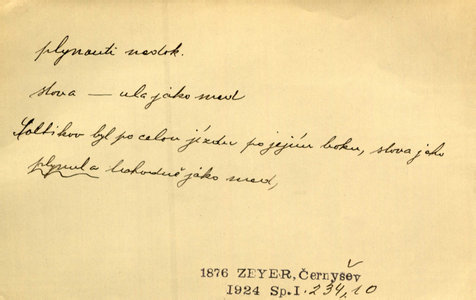 plynouti nedok.
slova — ula jako med
Soltikov byl po celou jízdu po jejím boku, slova jako
plynula lahodně jako med,
1876 ZEYER, Černyšev
1924 Sp. I. 234,10